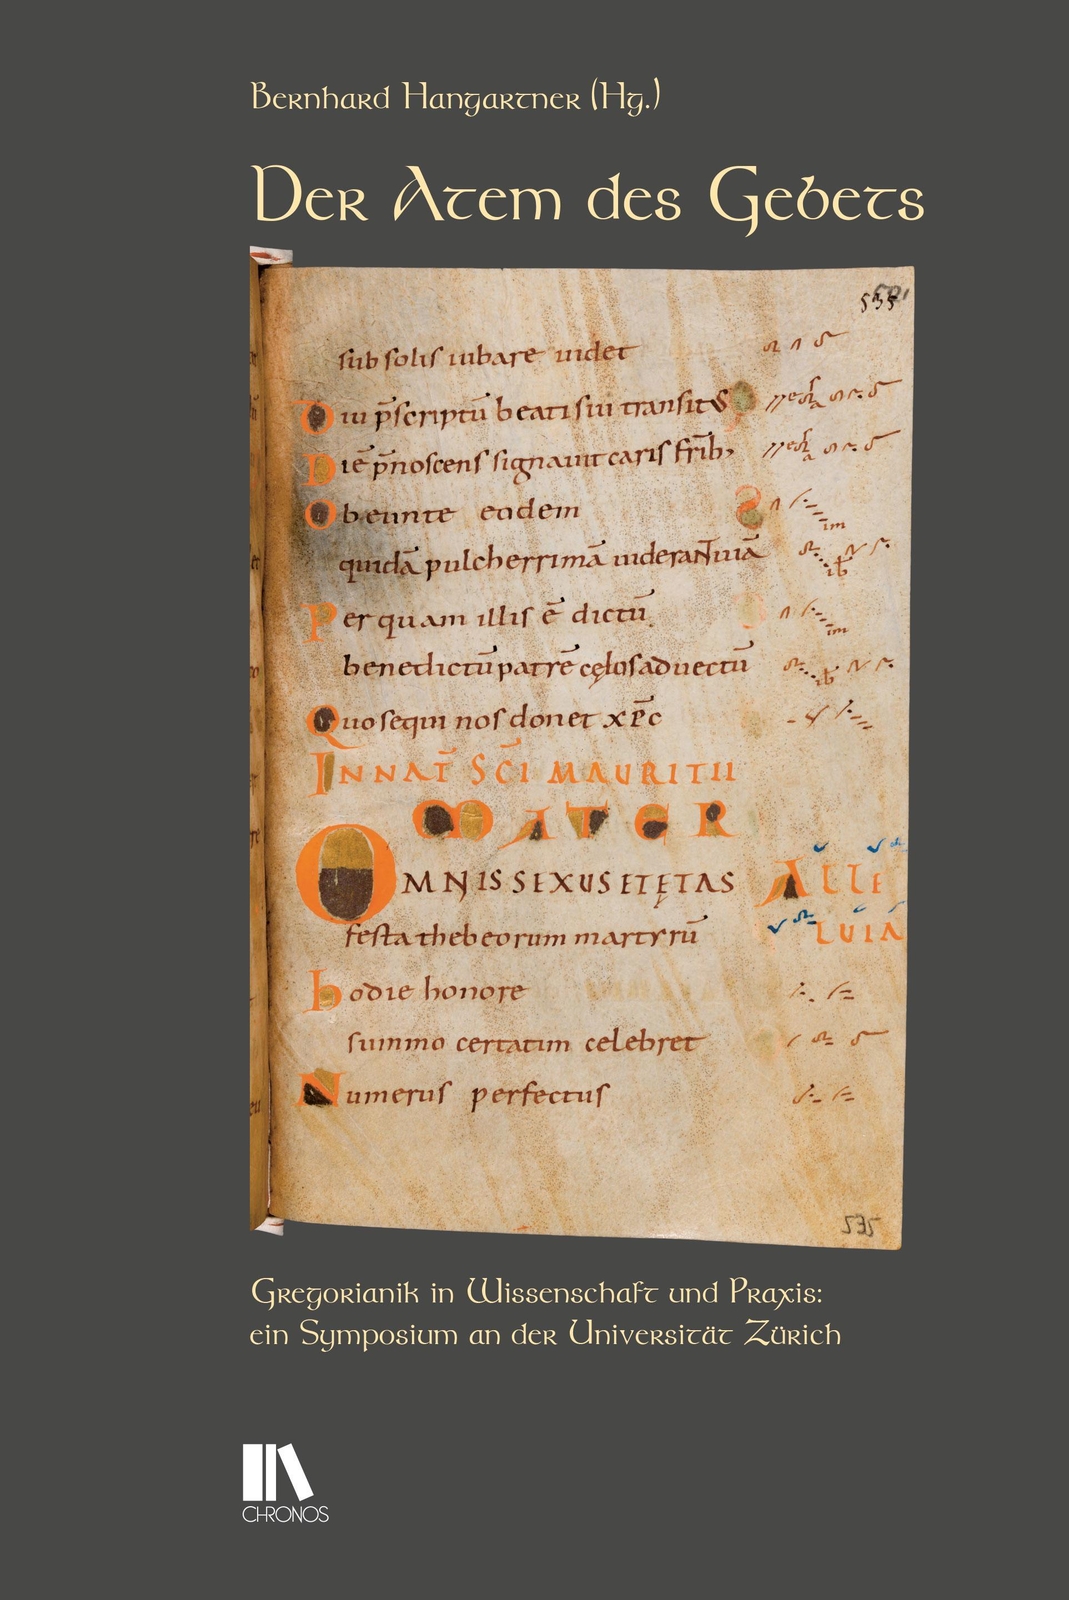 Bernhard Hangartner (Hg.)
Der Atem des Gebets
535
sub solis iubare uidet
Diu p̄scriptū beati sui transitus
Diē p̄noscens signauit caris fr̄ib;
Obeunte eodem
im
quidā pulcherrimā uiderant uiā
ib
Per quam illis ē dictū
im
benedictū patrē cęlos aduectū
ib
Quo sequi nos donet xp̄c
IN NAT̄ SC̄I MAURITII
MATER
OMNIS SEXUS ET ĘTAS ALLE
festa thebeorum martyrū LUIA
hodie honore
summo certatim celebret
Numerus perfectus
535
Gregorianik in Wissenschaft und Praxis:
ein Symposium an der Universität Zürich
CHRONOS